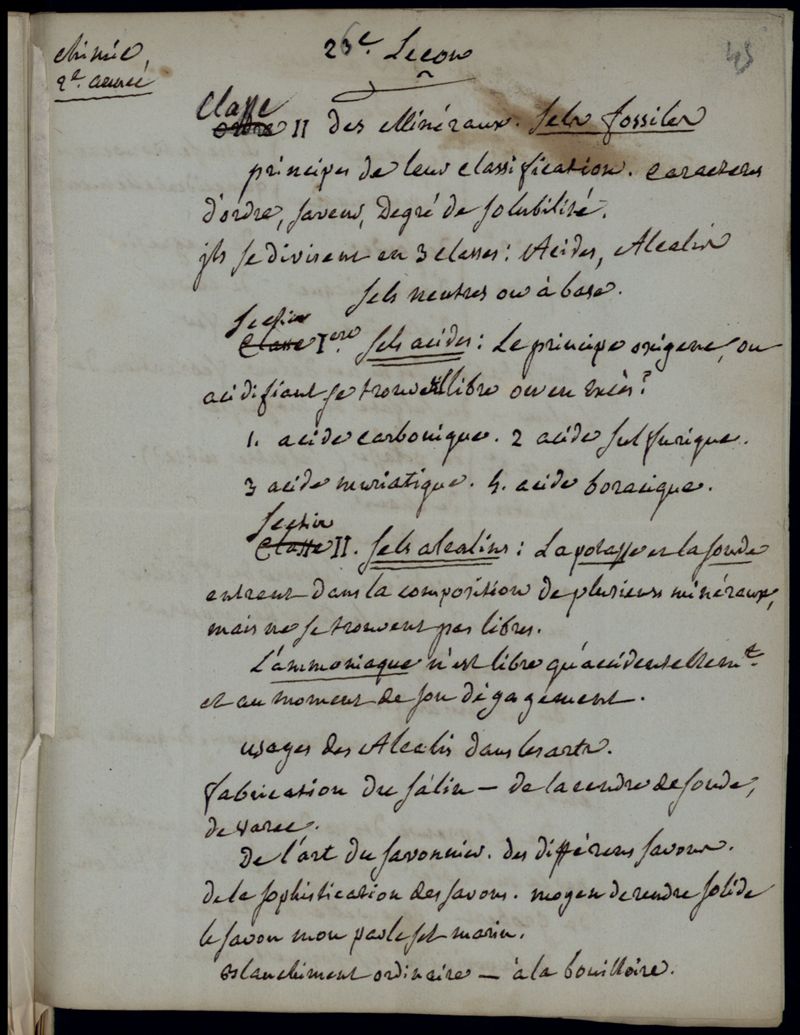 chimie,
2e. année
26e. Leçon
45
Classe
ordre II des Minéraux. Sels fossiles
principes de leur classification. Caracteres
d'ordre, saveur, Degré de solubilité.
ils se divisent en 3 classes: Acides, Alcalis
sels neutres ou à base.
Section
Classe Iere. Sels acides: Le principe oxigene, ou
acidifiant se trouve libre ou en excès?
1. acide carbonique. 2 acide sulfurique.
3 acide muriatique. 4. acide boracique.
Section
Classe II. Sels alcalins: La potasse et la soude
entrent dans la composition de plusieurs minéraux,
mais ne se trouvent pas libres.
L'ammoniaque n'est libre qu'accidentellemt.
et au moment de son dégagement.
usages des Alcalis dans les arts.
fabrication du sâlin — de la cendre de soude,
de varec.
De l'art du savonnier. des différens savons.
de la sophistication des savons. moyen de rendre solide
le savon mou par le sel marin.
Blanchiment ordinaire — à la bouilloire.